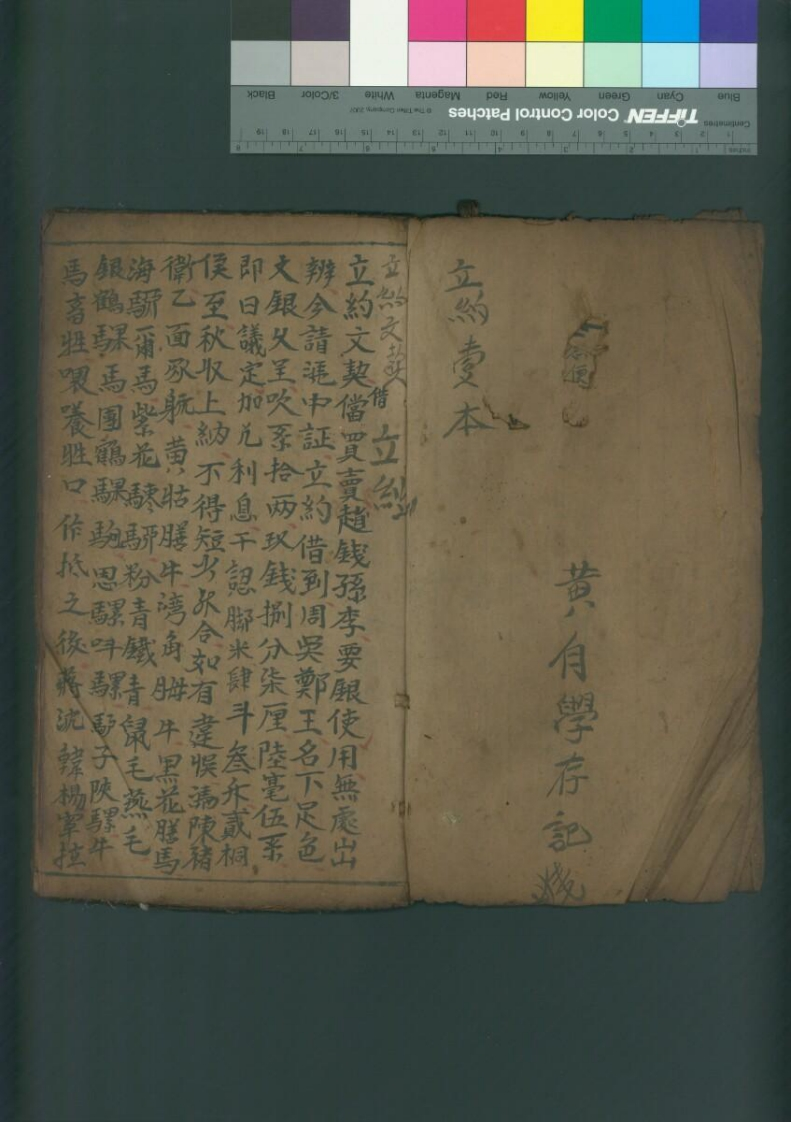 Blue Cyan Green Yellow Red Magenta White 3/Color Black
TIFFEN Color Control Patches
© The Tiffen Company, 2007
Centimetres
Inches
立約賣本
黄自學存記
立約文契
借
立約
立約文契儅買賣趙錢孫李要銀使用無處出
辨今請憑中証立約借到周吳鄭王名下足色
文銀乂呈吹系拾两玖錢捌分柒厘陸毫伍系
即日議定加兊利息干認脚米肆斗叁升貳桐
俟至秋收上納不得短少升合如有違悞馮陳禇
衛乙面承躭黄牯膳牛湾角𤛓牛黑花膳馬
海騮爾馬紫花騲騾粉青鐵青鼠毛燕毛
銀鶴騍馬團鶴騍駒恩騾呌騾馿子陝騾牛
馬畜牲喂養牲口作抵之後蔣沈韓楊宰拉